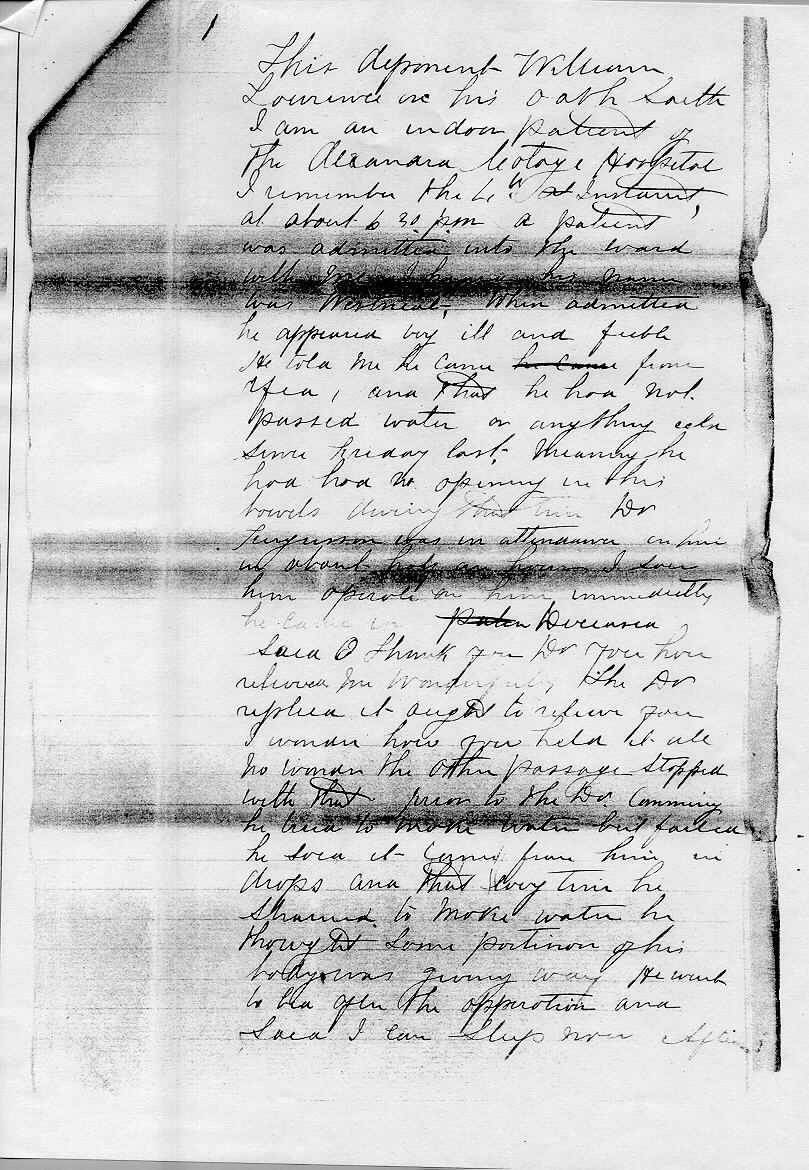 1
This deponent William
Lawrence on his Oath Saith
I am an indoor patient of
the Alexandra Cotage Hospital
I remember the 4th Instant,
at about 6 30 p.m a patient
was admitted into the ward
with me I his name
was When admitted
he appeared very ill and feeble
He told me he came he came from
Yea, and that he had not
passed water or anything else
since Friday last, meaning he
had had no opening in his
bowels during that time Dr
Fergusson was in attendance on him
in about half an hour I saw
him operate on him immediately
he came in Deceased
Said O Thank you Dr you have
relieved me wonderfully The Dr
replied it aught to relieve you
I wonder how you held it all
no wonder the other passage stopped
with that prior to the Dr. Comming
he tried to make water but failed
he said it came from him in
drops and that every time he
strained to make water he
thought some portion of his
body was giving way He went
to bed after the opperation and
Said I can Sleep now After